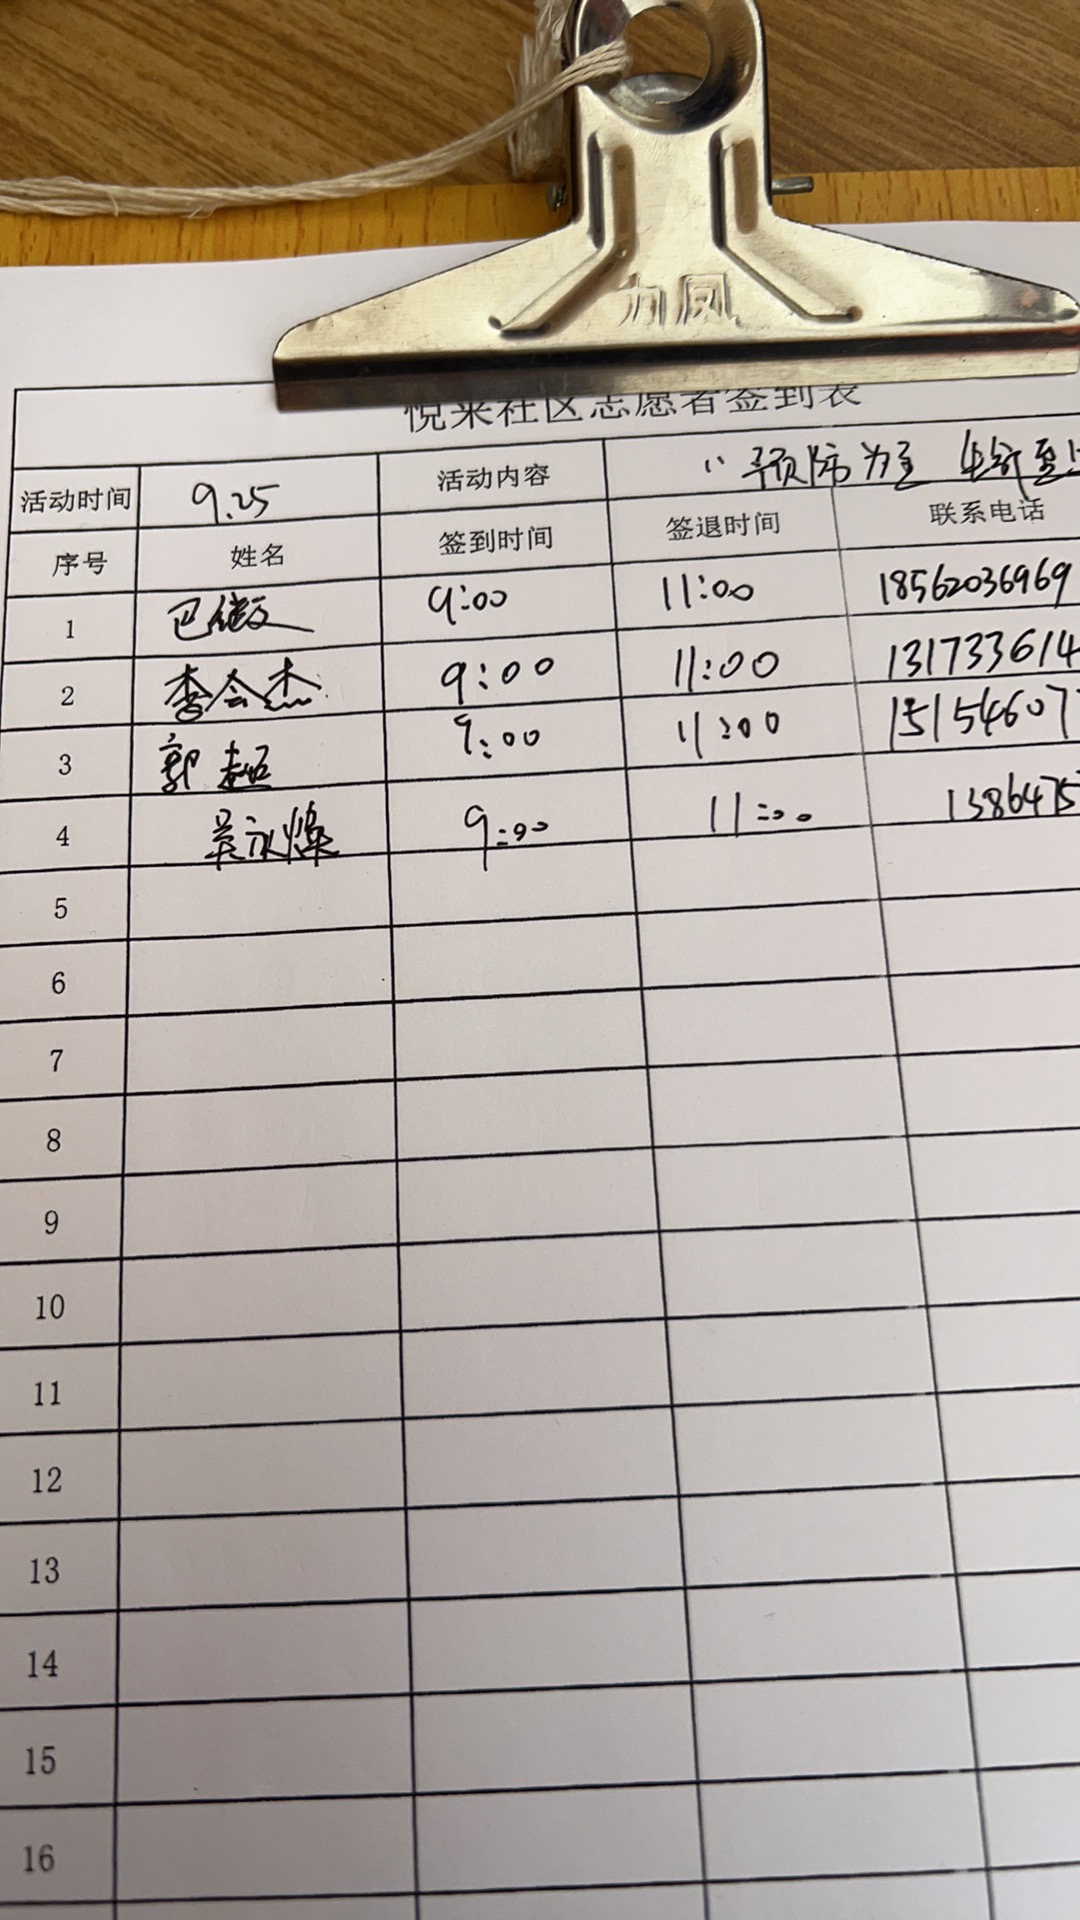 力凤
悦来社区志愿者签到表
活动时间 9.25 活动内容 “预防为主 生命至上
序号 姓名 签到时间 签退时间 联系电话
1 9:00 11:00 18562036969
2 李会杰 9:00 11:00 131733614
3 郭超 9:00 11:00 15154607
4 吴永焕 9:00 11:00 1386475
5
6
7
8
9
10
11
12
13
14
15
16